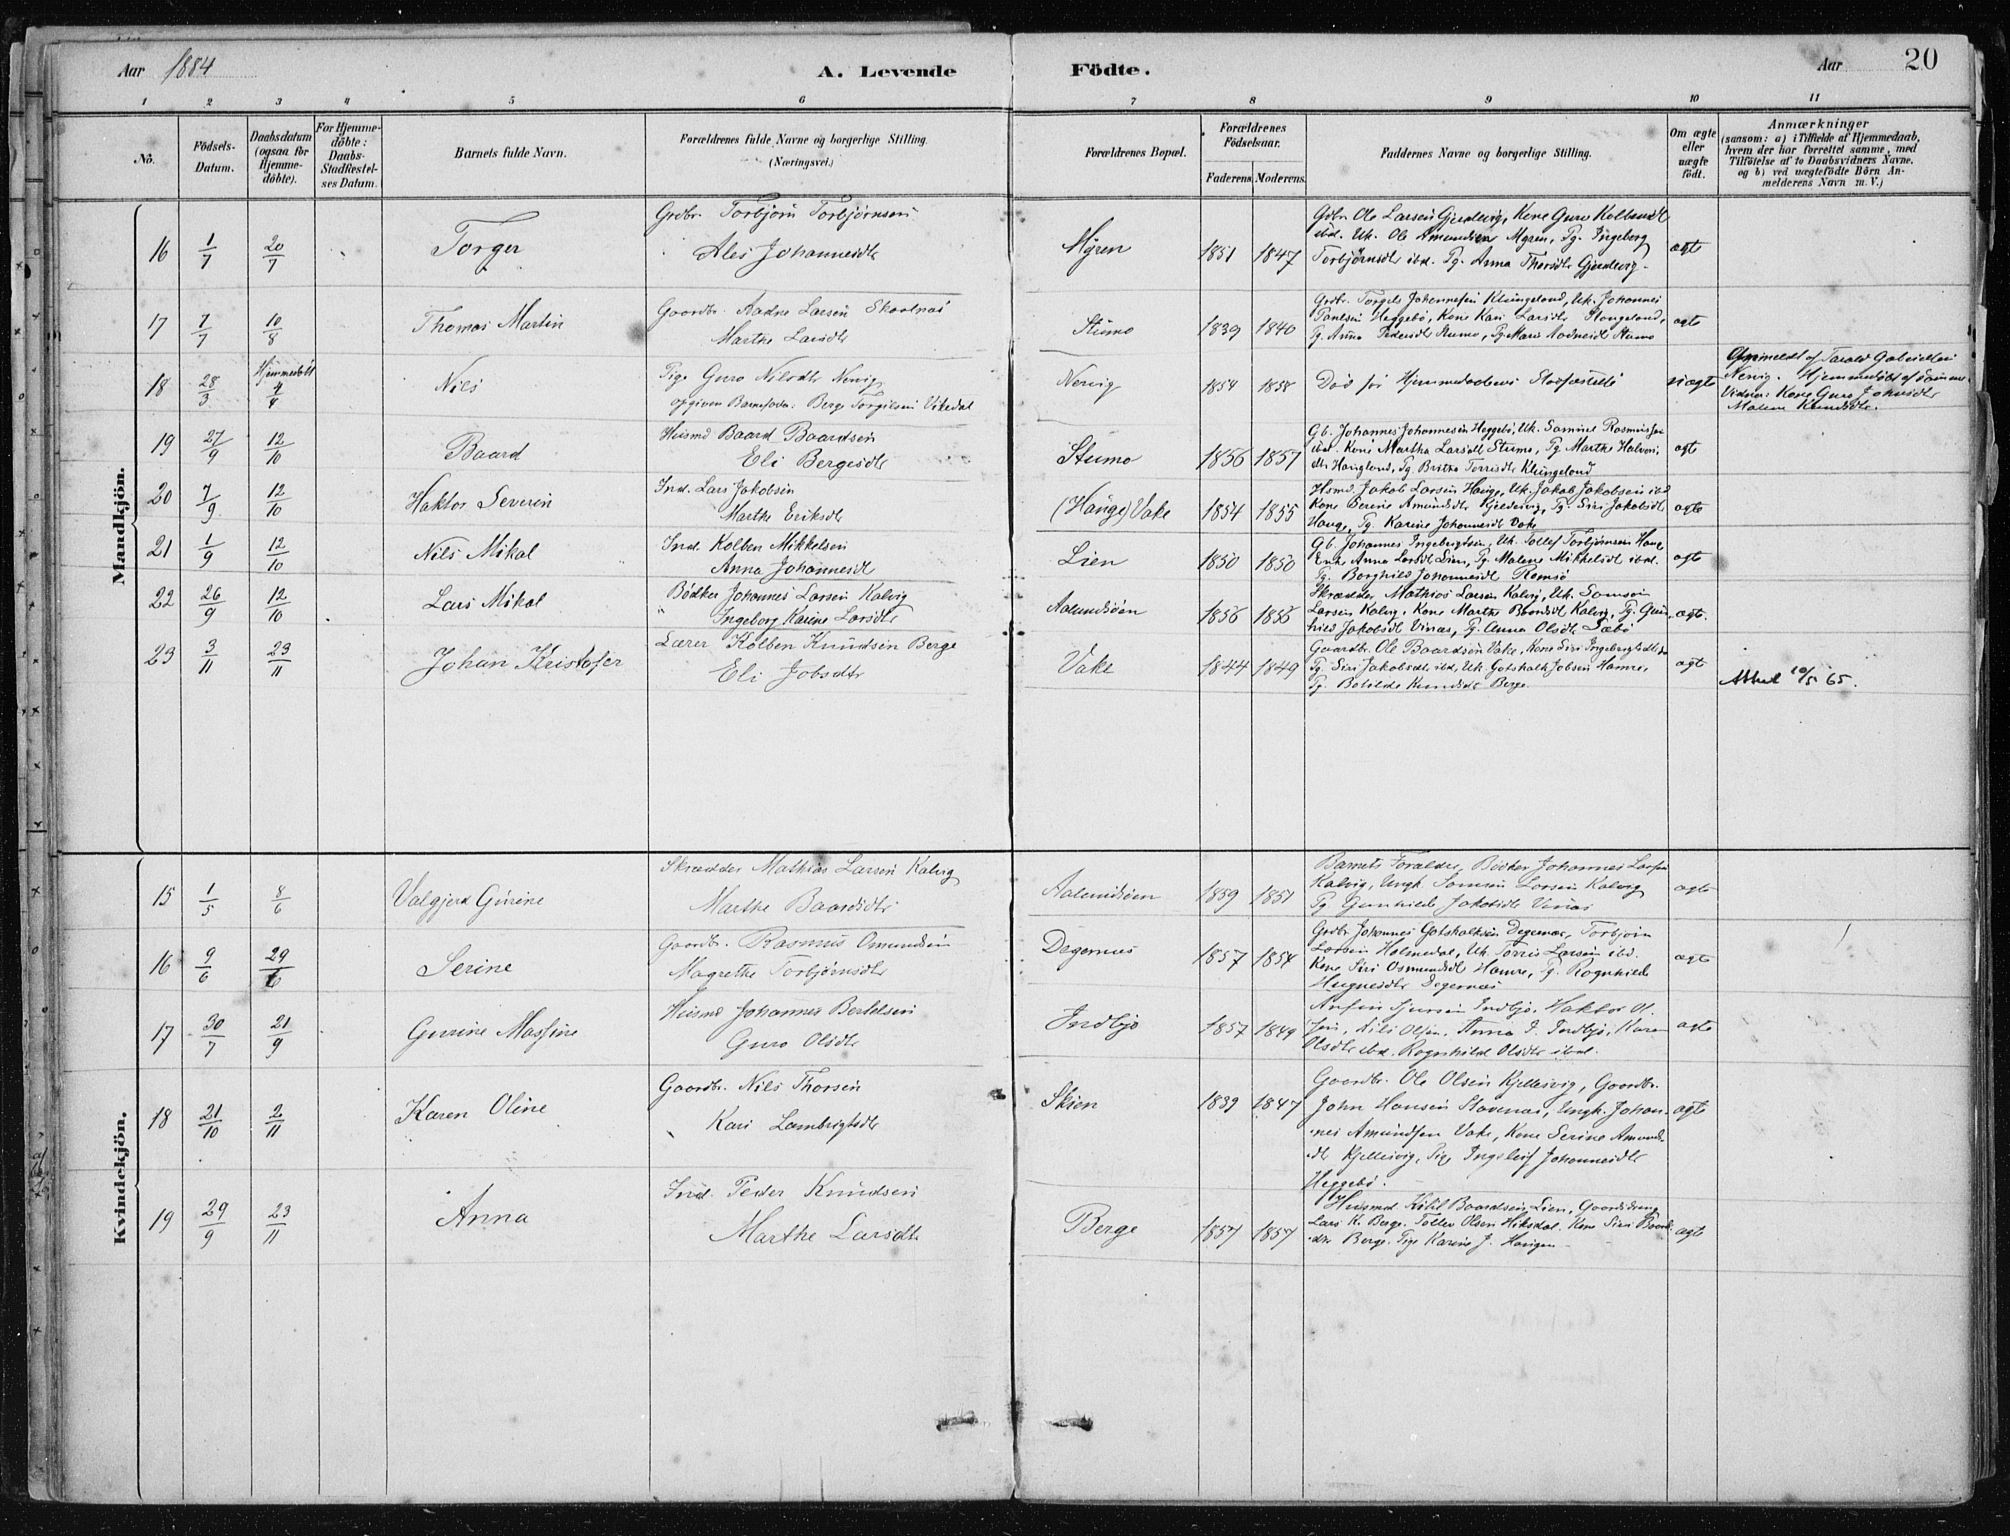 Aar 1884
A. Levende Födte.
Aar 20
1 2 3 4 5 6 7 8 9 10 11
No.
Födsels-Datum.
Daabsdatum (ogsaa for Hjemme-döbte).
For Hjemme-döbte: Daabs-Stadfæstel-ses Datum.
Barnets fulde Navn.
Forældrenes fulde Navne og borgerlige Stilling. (Næringsvei.)
Forældrenes Bopæl.
Forældrenes Födselsaar.
Faderens. Moderens.
Faddernes Navne og borgerlige Stilling.
Om ægte eller uægte födt.
Anmærkninger
(sansom: a) i Tilfælde af Hjemmedaab,
hvem der har forrettet samme, med
Tilföielse af to Daabsvidners Navne.
og b) ved uægtefödte Börn An-
melderens Navn m. V.)
Mandkjön.
16 1/7 20/7 Torger
Grdbr. Torbjörn Torbjörnsen
Ales Johannesdtr
Myren 1851 1847
Gdbr Ole Larsen Gjerdevig, Kone Guro Kolbensdt
ibd. Uk. Ole Amundsen Myren, Pg. Ingeborg
Torbjörnsdtr ibd. Pg. Anna Thorsdtr Gjerdevig.
ægte
17 7/7 10/8 Thomas Martin
Gaardbr. Aadne Larsen
Marthe Larsdtr
Stumo 1839 1840
Grdbr. Torgels Johannesen Klungeland, Uk. Johannes
Paulsen Heggebö, Kone Kari Larsdtr Stangeland,
Pg. Anna Pedersdt Stumo, Pg. Mari Aadnesdt Stumo
ægte
18 28/3 Hjemmedöbt 4/4 Nils
Pige Guro Nilsdtr Nervig
opgiven Barnefader: Berge Torgilsen Vikedal
Nervig 1854 1858
Död för Hjemmedaabens Stadfæstelse
uægte
Anmeldt af Tarald Gabrielsen
Nervig. Hjemmedöbt af samme
Vidner: Kone Guro Johnsdtr
Malene Knudsdtr.
19 27/9 12/10 Baard
Husmd Baard Baardsen
Eli Bergesdtr
Stumo 1856 1857
Gb. Johannes Johannesen Heggebö, Uk. Samuel Rasmussen
ibd. Kone Martha Larsdt Stumo, Pg Marthe Halvors
dtr Hauglund, Pg Britha Torrisdtr Klungeland
ægte
20 7/9 12/10 Haktor Severin
Ind. Lars Jakobsen
Marthe Eriksdtr
(Hauge) Vake 1854 1855
Hsmd. Jakob Larsen Hauge, Uk. Jakob Jakobsen ibd
Kone Serine Amundsdt Gjerdevig, Pg. Siri Jakobsdt
Hauge, Pg. Karine Johannesdt Vake
ægte
21 1/9 12/10 Nils Mikal
Ind. Kolben Mikkelsen
Anna Johannesdt
Lien 1850 1850
Gb. Johannes Ingebrigtsen, Uk. Tollef Torbjörnsen Haug
Enke Anna Larsdt Lien, Pg. Malene Mikkelsdt ibd.
Pg. Borghild Johannesdt Ramsö
ægte
22 26/9 12/10 Lars Mikal
Bödker Johannes Larsen Kalvig
Ingeborg Karine Larsdtr
Aalundsöen 1856 1856
Skrædder Mathias Larsen Kalvig, Uk. Samson
Larsen Kalvig, Kone Marthe Baardsdt Kalvig, Pg. Gun-
hild Jakobsdt Vinas, Pg. Anna Olsdtr Sæbö
ægte.
23 3/11 23/11 Johan Kristofer
Lærer Kolben Knudsen Berge
Eli Jobsdtr
Vake 1844 1849
Gaardbr. Ole Baardsen Vake, Kone Siri Ingebrigtsdtr
Pg. Siri Jakobsdtr ibd, Uk. Gotskalk Jobsen Hamre,
Pg. Botilde Knudsdt Berge.
ægte
Attest 10/5 65.
Kvindekjön.
15 1/5 8/6 Valgjerd Gurine
Skrædder Mathias Larsen Kalvig
Marthe Baardsdtr
Aalundsöen 1859 1851
Barnets Foraldre, Bödker Johannes Larsen
Kalvig, Ungk. Samson Larsen Kalvig
Pg. Gunhilde Jakobsdt Vinas
ægte
16 9/6 29/6 Serine
Gaardbr. Rasmus Omundsen
Magrethe Torbjörnsdtr
Degernes 1857 1854
Grdbr Johannes Gotskalksen Degernes, Torbjörn
Larsen Holmedal, Uk. Torris Larsen ibd.
Kone Siri Osmundsdt Hamre, Pg. Ragnhilde
Degernæs
ægte
17 30/7 21/9 Gurine Massine
Husmd Johannes Bertelsen
Guro Olsdtr
Indbjo 1857 1849
Anfin Sjursen Indbjo, Haktor Ol-
sen, Nils Olsen, Anna P. Indbjo, Karen
Olsdtr ibd. Ragnhild Olsdtr ibd.
ægte
18 21/10 2/11 Karen Oline
Gaardbr. Nils Thorsen
Kari Lambrigtsdtr
Skien 1839 1847
Gaardbr. Ole Olsen Kjellesvig, Gaardbr.
John Hansen Stavenæs, Ungk. Johan-
nes Amundsen Vake, Kone Serine Amunds-
dt Kjellesvig, Pige Ingeleif Johannesdtr
Heggebö.
ægte
19 29/9 23/11 Anna
Ind. Peder Knudsen
Marthe Larsdtr
Berge 1857 1857
Husmd Ketil Baardsen Lien, Gaarddreng
Lars K. Berge. Tollev Olsen Hiksdal. Kone Siri Baards-
dtr Berge. Pige Karine J. Haugen
ægte